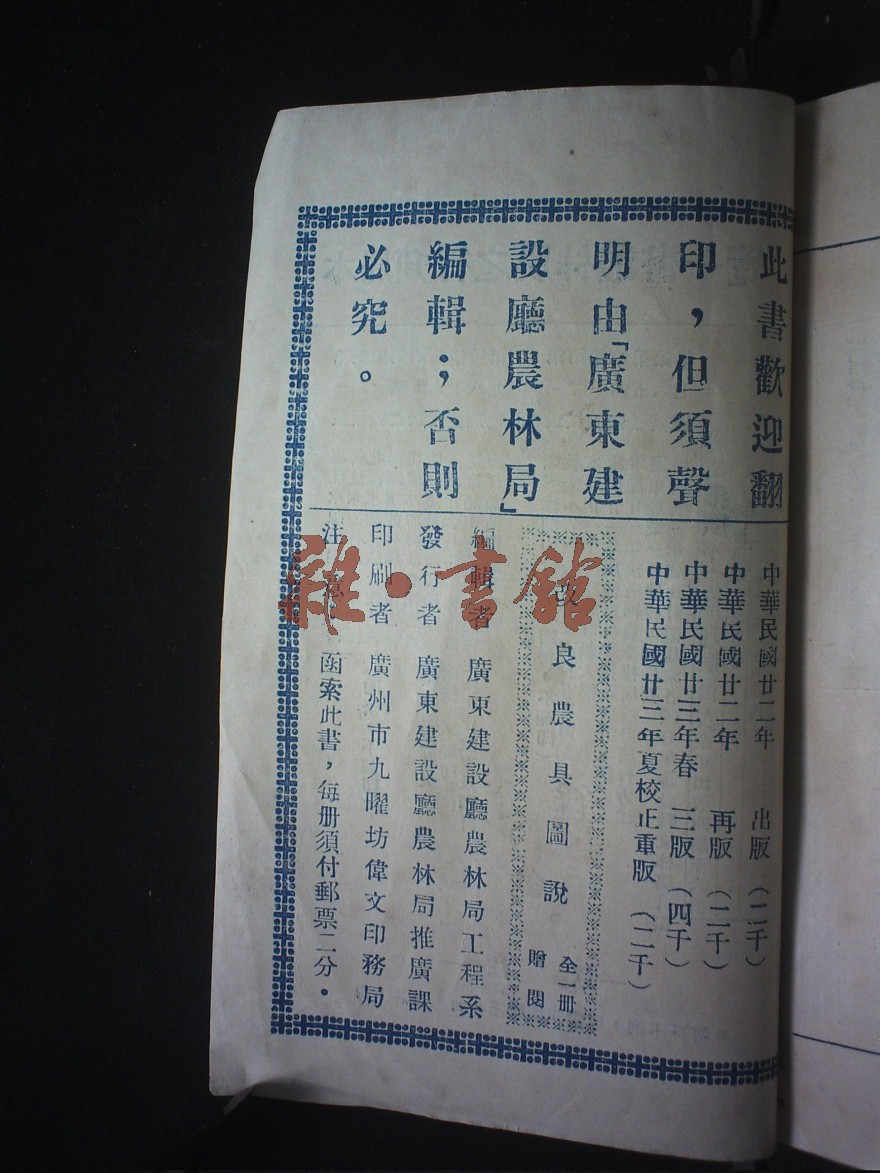 此書歡迎翻
印，但須聲
明由「廣東建
設廳農林局」
編輯；否則
必究。
中華民國廿二年 出版（二千）
中華民國廿二年 再版（二千）
中華民國廿三年春 三版（四千）
中華民國廿三年夏校正重版（二千）
改良農具圖說
全一冊
贈閱
編輯者 廣東建設廳農林局工程系
發行者 廣東建設廳農林局推廣課
印刷者 廣州市九曜坊偉文印務局
注意 函索此書，每冊須付郵票二分。
雜·書館